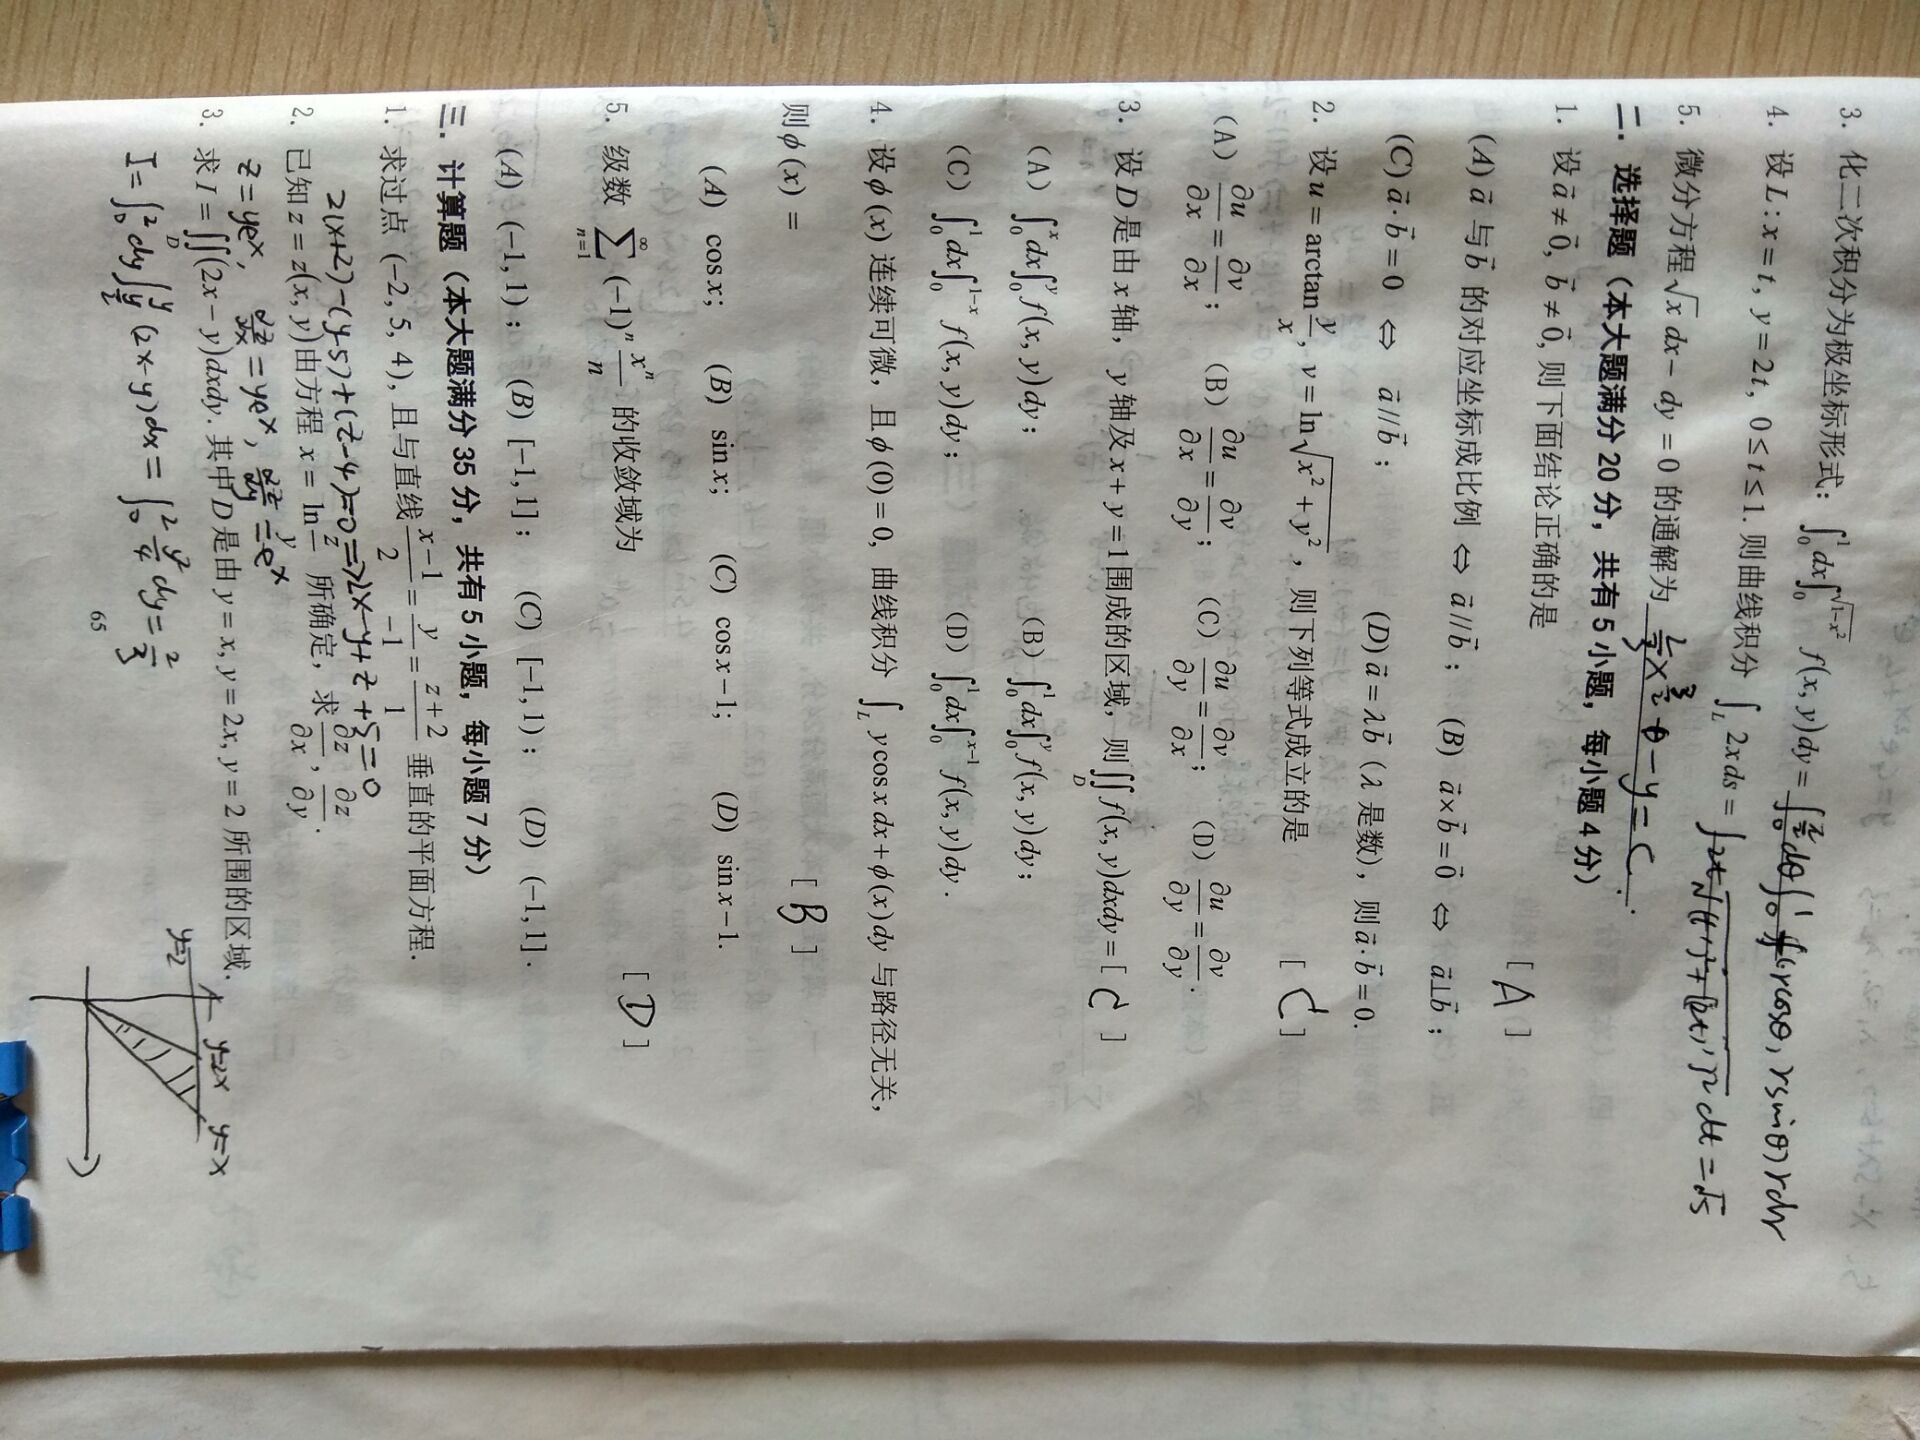 3. 化二次积分为极坐标形式: ∫₀¹dx∫₀^{√(1-x²)} f(x, y)dy = ∫₀^{π/2}dθ∫₀¹ f(rcosθ, rsinθ)rdr
4. 设 L: x = t, y = 2t, 0 ≤ t ≤ 1. 则曲线积分 ∫_L 2xds = ∫2t√((t')²+(2t')²)dt = √5
5. 微分方程 √x dx − dy = 0 的通解为 2/3 x^{3/2} − y = C.
二. 选择题（本大题满分 20 分，共有 5 小题，每小题 4 分）
1. 设 a⃗ ≠ 0⃗, b⃗ ≠ 0⃗, 则下面结论正确的是 [ A ]
(A) a⃗ 与 b⃗ 的对应坐标成比例 ⇔ a⃗//b⃗; (B) a⃗×b⃗ = 0⃗ ⇔ a⃗⊥b⃗;
(C) a⃗·b⃗ = 0 ⇔ a⃗//b⃗; (D) a⃗ = λb⃗ (λ 是数), 则 a⃗·b⃗ = 0.
2. 设 u = arctan y/x, v = ln√(x² + y²), 则下列等式成立的是 [ C ]
(A) ∂u/∂x = ∂v/∂x; (B) ∂u/∂x = ∂v/∂y; (C) ∂u/∂y = ∂v/∂x; (D) ∂u/∂y = ∂v/∂y.
3. 设 D 是由 x 轴, y 轴及 x + y = 1 围成的区域, 则 ∬_D f(x, y)dxdy = [ C ]
(A) ∫₀ˣdx∫₀ʸ f(x, y)dy; (B) ∫₀¹dx∫₀ʸ f(x, y)dy;
(C) ∫₀¹dx∫₀^{1-x} f(x, y)dy; (D) ∫₀¹dx∫₀^{x-1} f(x, y)dy.
4. 设 ϕ(x) 连续可微, 且 ϕ(0) = 0, 曲线积分 ∫_L ycosxdx + ϕ(x)dy 与路径无关,
则 ϕ(x) = [ B ]
(A) cosx; (B) sinx; (C) cosx−1; (D) sinx−1.
5. 级数 ∑_{n=1}^∞ (−1)ⁿ xⁿ/n 的收敛域为 [ D ]
(A) (−1, 1); (B) [−1, 1]; (C) [−1, 1); (D) (−1, 1].
三. 计算题（本大题满分 35 分，共有 5 小题，每小题 7 分）
1. 求过点 (−2, 5, 4), 且与直线 (x−1)/2 = y/−1 = (z+2)/1 垂直的平面方程.
2(x+2)−(y−5)+(z−4)=0 ⇒ 2x−y+z+5=0
2. 已知 z = z(x, y) 由方程 x = ln z/y 所确定, 求 ∂z/∂x, ∂z/∂y.
z = yeˣ, ∂z/∂x = yeˣ, ∂z/∂y = eˣ
3. 求 I = ∬_D (2x − y)dxdy. 其中 D 是由 y = x, y = 2x, y = 2 所围的区域.
I = ∫₀² dy∫_{y/2}^y (2x−y)dx = ∫₀² y²/4 dy = 2/3
y=2 y=2x y=x
65